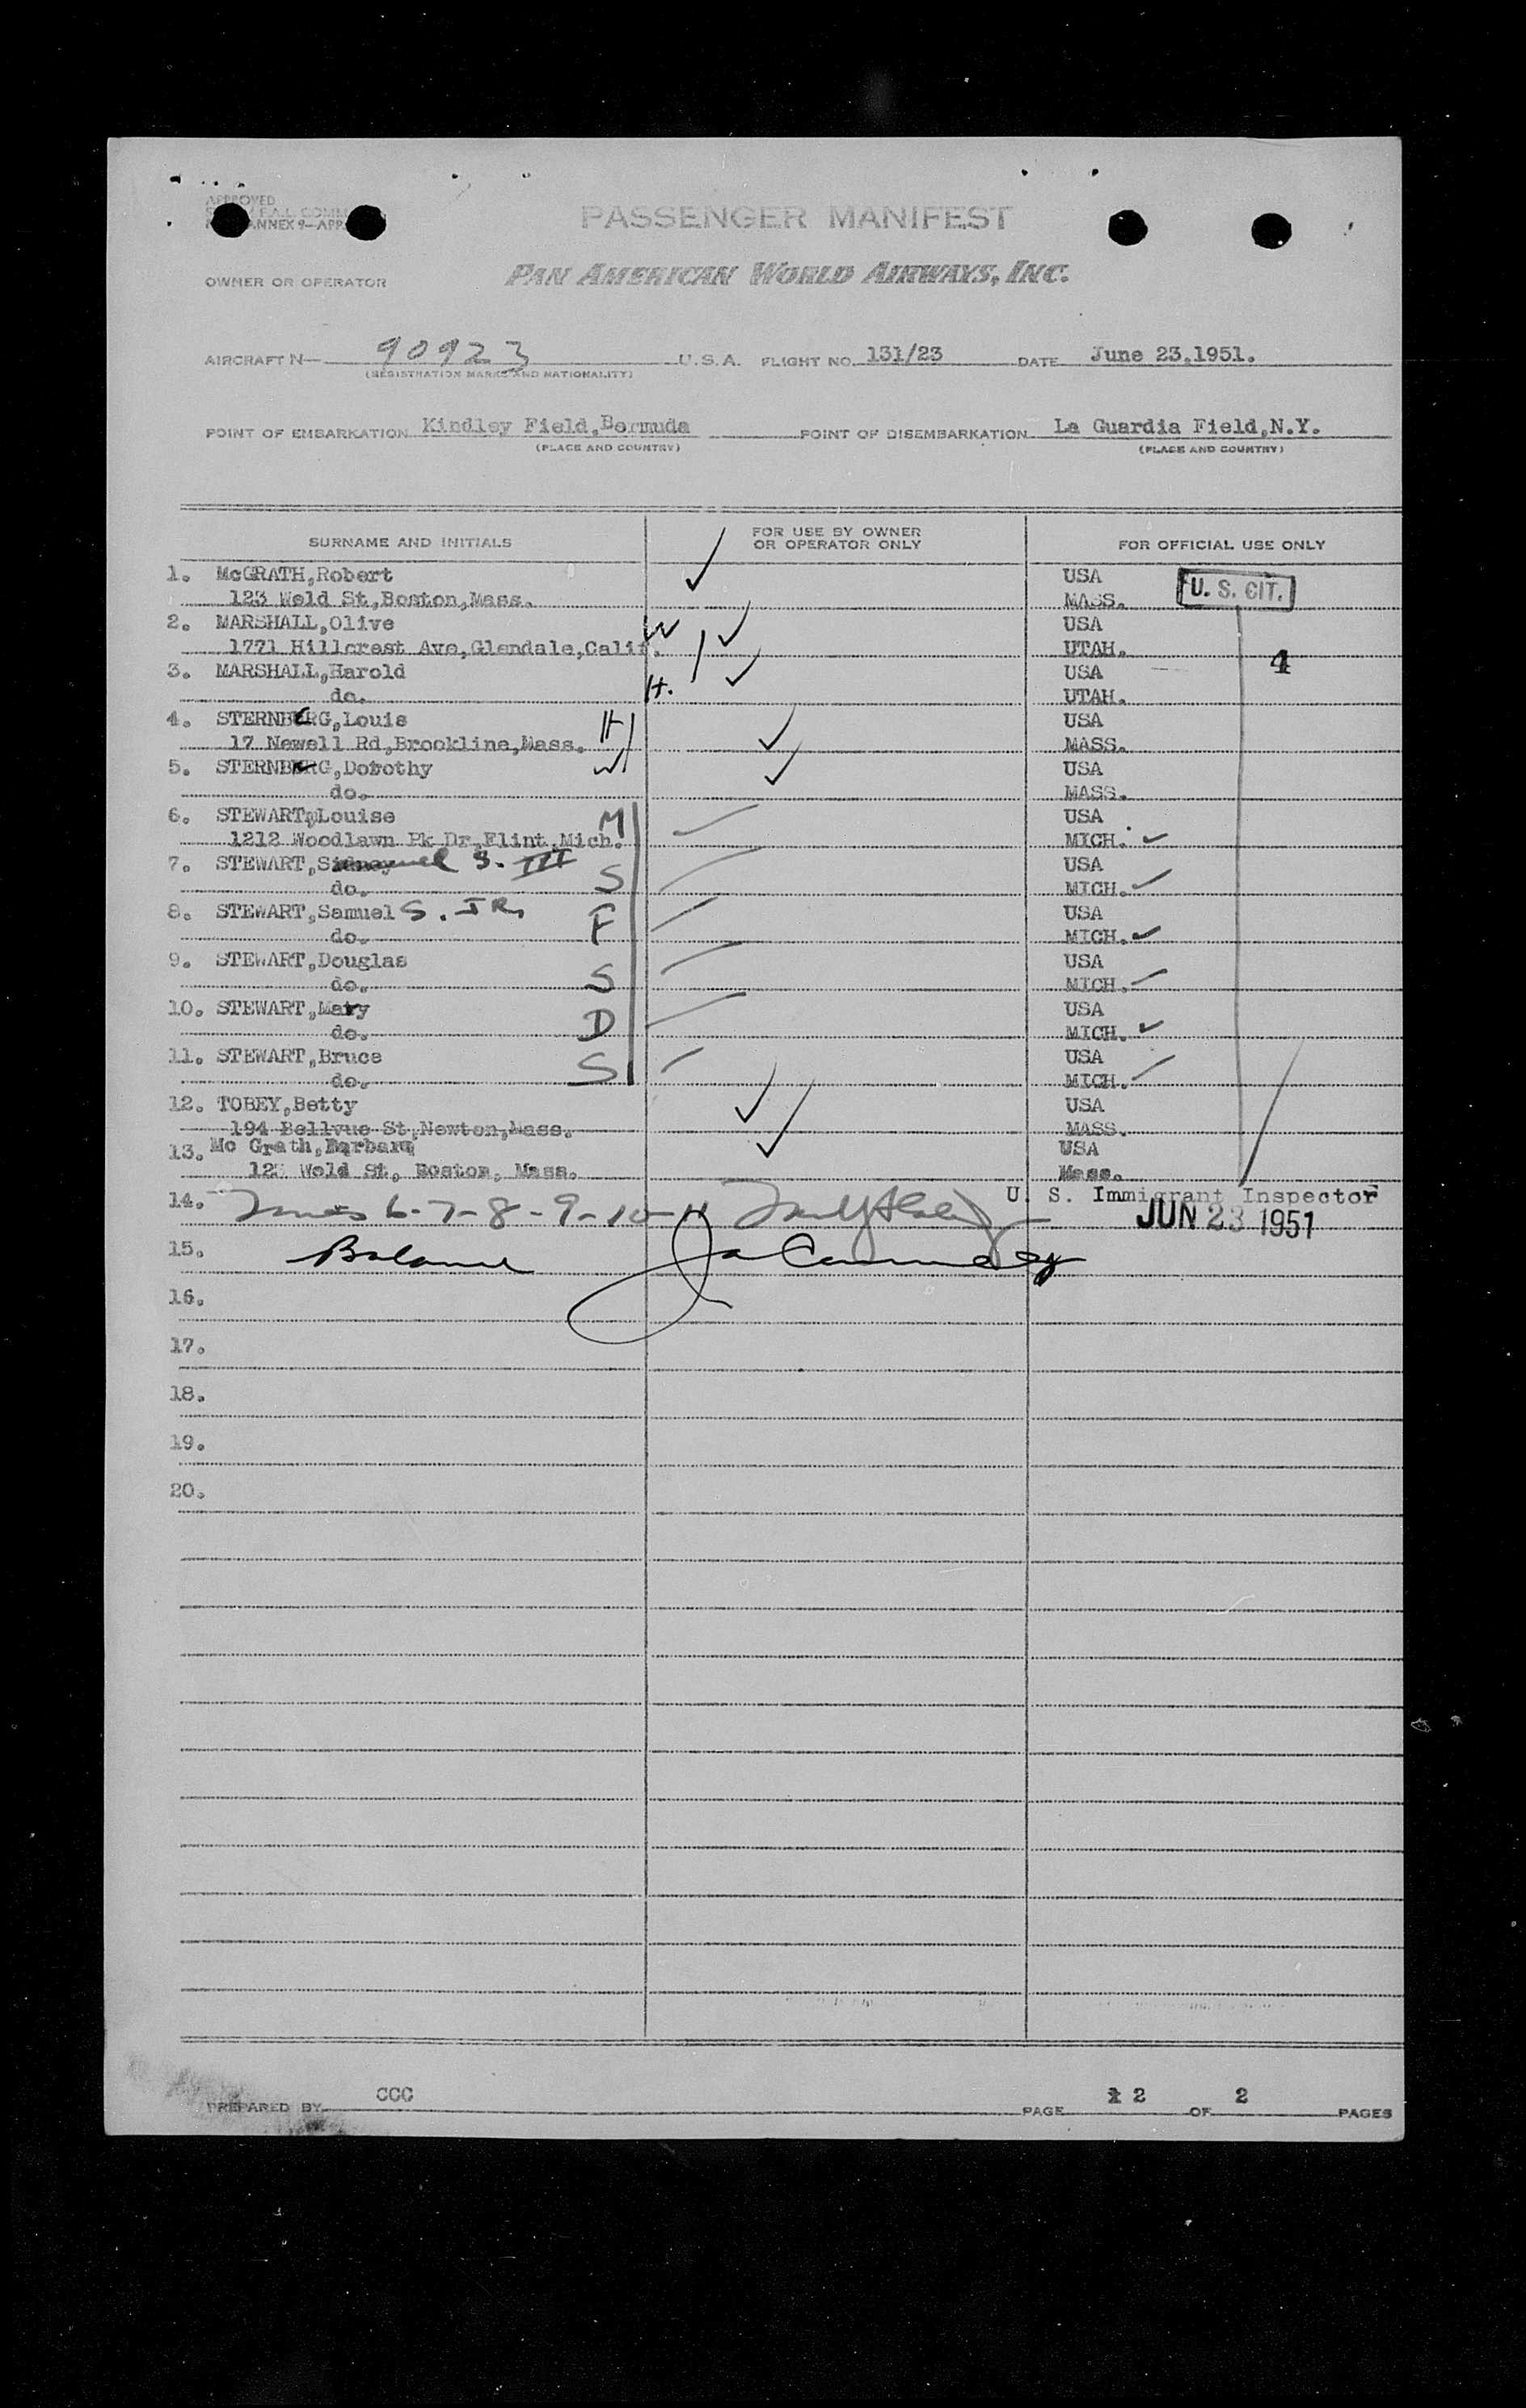 APPROVED
ANNEX 9—APP.
PASSENGER MANIFEST
OWNER OR OPERATOR PAN AMERICAN WORLD AIRWAYS, INC.
AIRCRAFT N— 90923 U.S.A. FLIGHT NO. 131/23 DATE June 23,1951.
(REGISTRATION MARKS AND NATIONALITY)
POINT OF EMBARKATION Kindley Field,Bermuda POINT OF DISEMBARKATION La Guardia Field,N.Y.
(PLACE AND COUNTRY) (PLACE AND COUNTRY)
SURNAME AND INITIALS FOR USE BY OWNER OR OPERATOR ONLY FOR OFFICIAL USE ONLY
1. McGRATH,Robert USA
123 Weld St,Boston,Mass. MASS. U. S. CIT.
2. MARSHALL,Olive W USA
1771 Hillcrest Ave,Glendale,Calif. UTAH. 4
3. MARSHALL,Harold USA
do. H. UTAH.
4. STERNBERG,Louis H USA
17 Newell Rd,Brookline,Mass. MASS.
5. STERNBERG,Dorothy W USA
do. MASS.
6. STEWART,Louise M USA
1212 Woodlawn Pk Dr,Flint,Mich. MICH.
7. STEWART, S. III S USA
do. MICH.
8. STEWART,Samuel S. JR. F USA
do. MICH.
9. STEWART,Douglas S USA
do. MICH.
10. STEWART,Mary D USA
do. MICH.
11. STEWART,Bruce S USA
do. MICH.
12. TOBEY,Betty USA
194 Bellvue St,Newton,Mass. MASS.
13. Mc Grath,Barbara USA
123 Weld St, Boston, Mass. Mass.
14. 6-7-8-9-10-11 U. S. Immigrant Inspector
JUN 23 1951
15. Balance
16.
17.
18.
19.
20.
PREPARED BY CCC PAGE 2 OF 2 PAGES